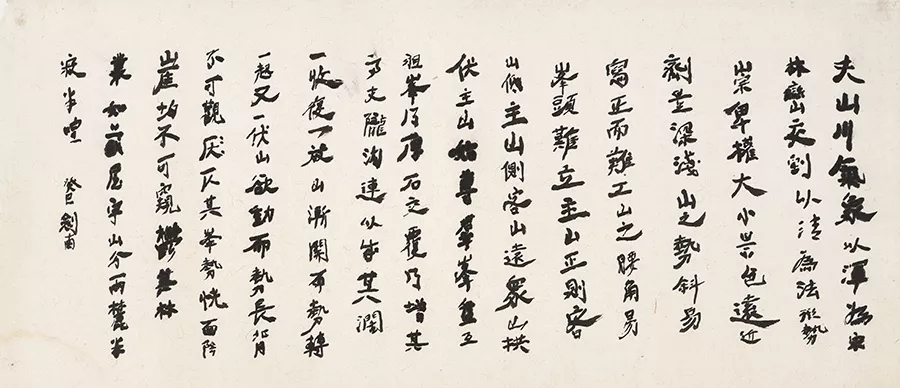 夫山川氣象以渾為宗
林巒交割以清為法形勢
崇卑權大小景色遠近
劑量深淺山之勢斜易
寫正而難工山之腰角易
峯頭難立主山正則客
山低主山側客山遠衆山拱
伏主山始尊羣峯盤互
祖峯乃厚石之覆乃增其
高支隴溝連以成其濶
一收復一放山漸開而勢轉
一起又一伏山欲動而勢長背
不可觀仄其峯勢恍面陰
崖坳不可窺鬱其林
叢如藏屋宇山分兩麓半
寂半喧 癸巳